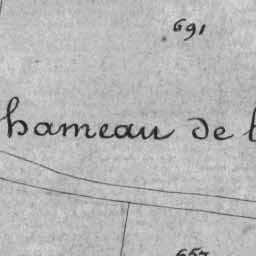 691
hameau de l
657